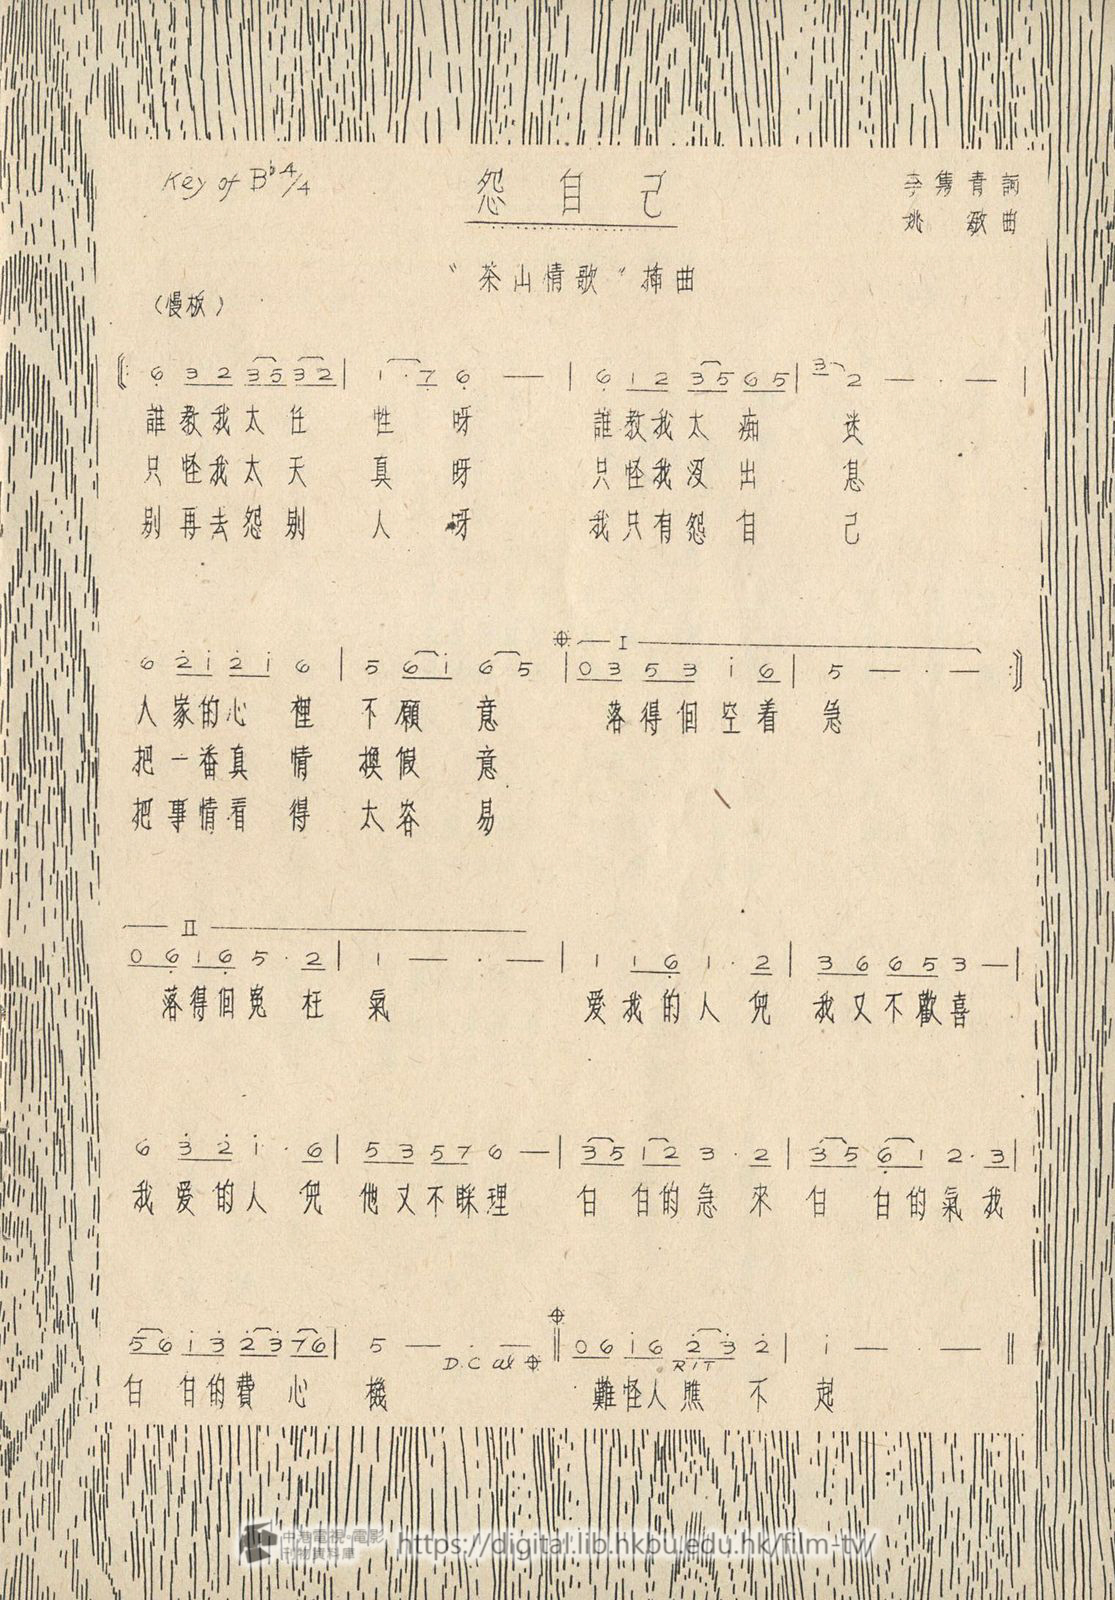 Key of B♭ 4/4
怨自己
李雋青詞
姚敏曲
“茶山情歌”插曲
(慢板)
6 3 2 3 5 3 2 | 1 · 7 6 — | 6 1 2 3 5 6 5 | 3 2 — · — |
誰教我太任性呀 誰教我太痴迷
只怪我太天真呀 只怪我沒出息
別再去怨別人呀 我只有怨自己
I
6 2 1 2 1 6 | 5 6 1 6 5 | 0 3 5 3 1 6 | 5 — · — :
人家的心裡不願意 落得個空着急
把一番真情換假意
把事情看得太容易
II
0 6 1 6 5 · 2 | 1 — · — | 1 1 6 1 · 2 | 3 6 6 5 3 — |
落得個冤枉氣 愛我的人兒 我又不歡喜
6 3 2 1 · 6 | 5 3 5 7 6 — | 3 5 1 2 3 · 2 | 3 5 6 1 2 · 3 |
我愛的人兒 他又不睬理 白白的急來白白的氣我
5 6 1 3 2 3 7 6 | 5 — · — || 0 6 1 6 2 3 2 | 1 — · — ||
D.C al RIT
白白的費心機 難怪人瞧不起
中港電視·電影
刊物資料庫
https://digital.lib.hkbu.edu.hk/film-tv/